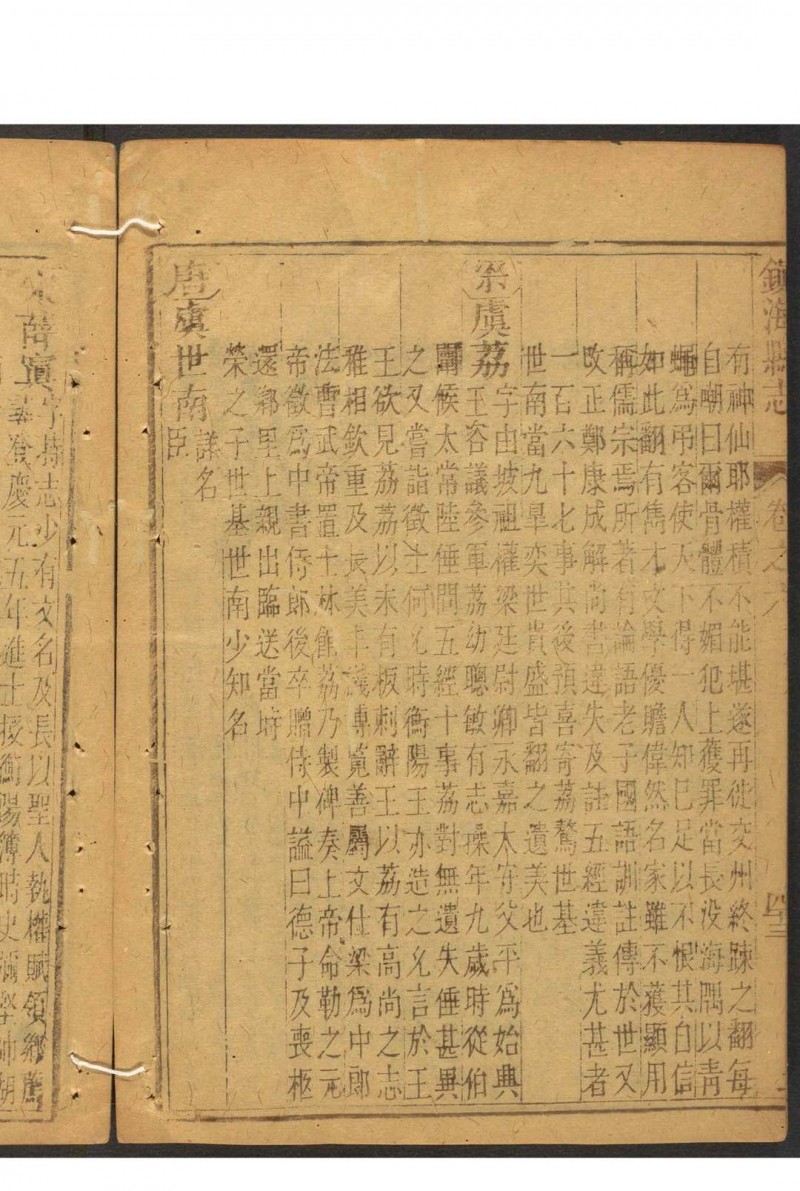 鎮海縣志
卷之八
四三
有神仙耶權積不能堪遂再徙交州終疎之翻每
自嘲曰爾骨體不媚犯上獲罪當長没海隅以青
蠅爲弔客使天下得一人知已足以不恨其自信
如此翻有雋才文學優贍偉然名家雖不獲顯用
稱儒宗焉所著有論語老子國語訓註傳於世又
攺正鄭康成解尚書違失及註五經違義尤甚者
一百六十七事其後預喜寄荔騖世基
世南當九臯奕世貴盛皆翻之遺美也
梁虞荔 字由坡祖權梁廷尉卿永嘉太守父平爲始典
王咨議參軍荔幼聰敏有志操年九歲時從伯
闡候太常陸倕問五經十事荔對無遺失倕甚異
之又嘗詣徵士何允時衡陽王亦造之允言於王
王欲見荔荔以未有板刺辭王以荔有高尚之志
雅相欽重及長美丰議博覧善屬文仕梁爲中郎
法曹武帝置士林館荔乃製碑奏上帝命勒之元
帝徵爲中書侍郎後卒贈侍中諡曰德子及喪柩
還鄕里上親出臨送當時
榮之子世基世南少知名
唐虞世南 詳名臣
宋薛寘 字持志少有文名及長以聖人執權賦領鄕薦
登慶元五年進士授衡陽簿時史彌堅帥胡